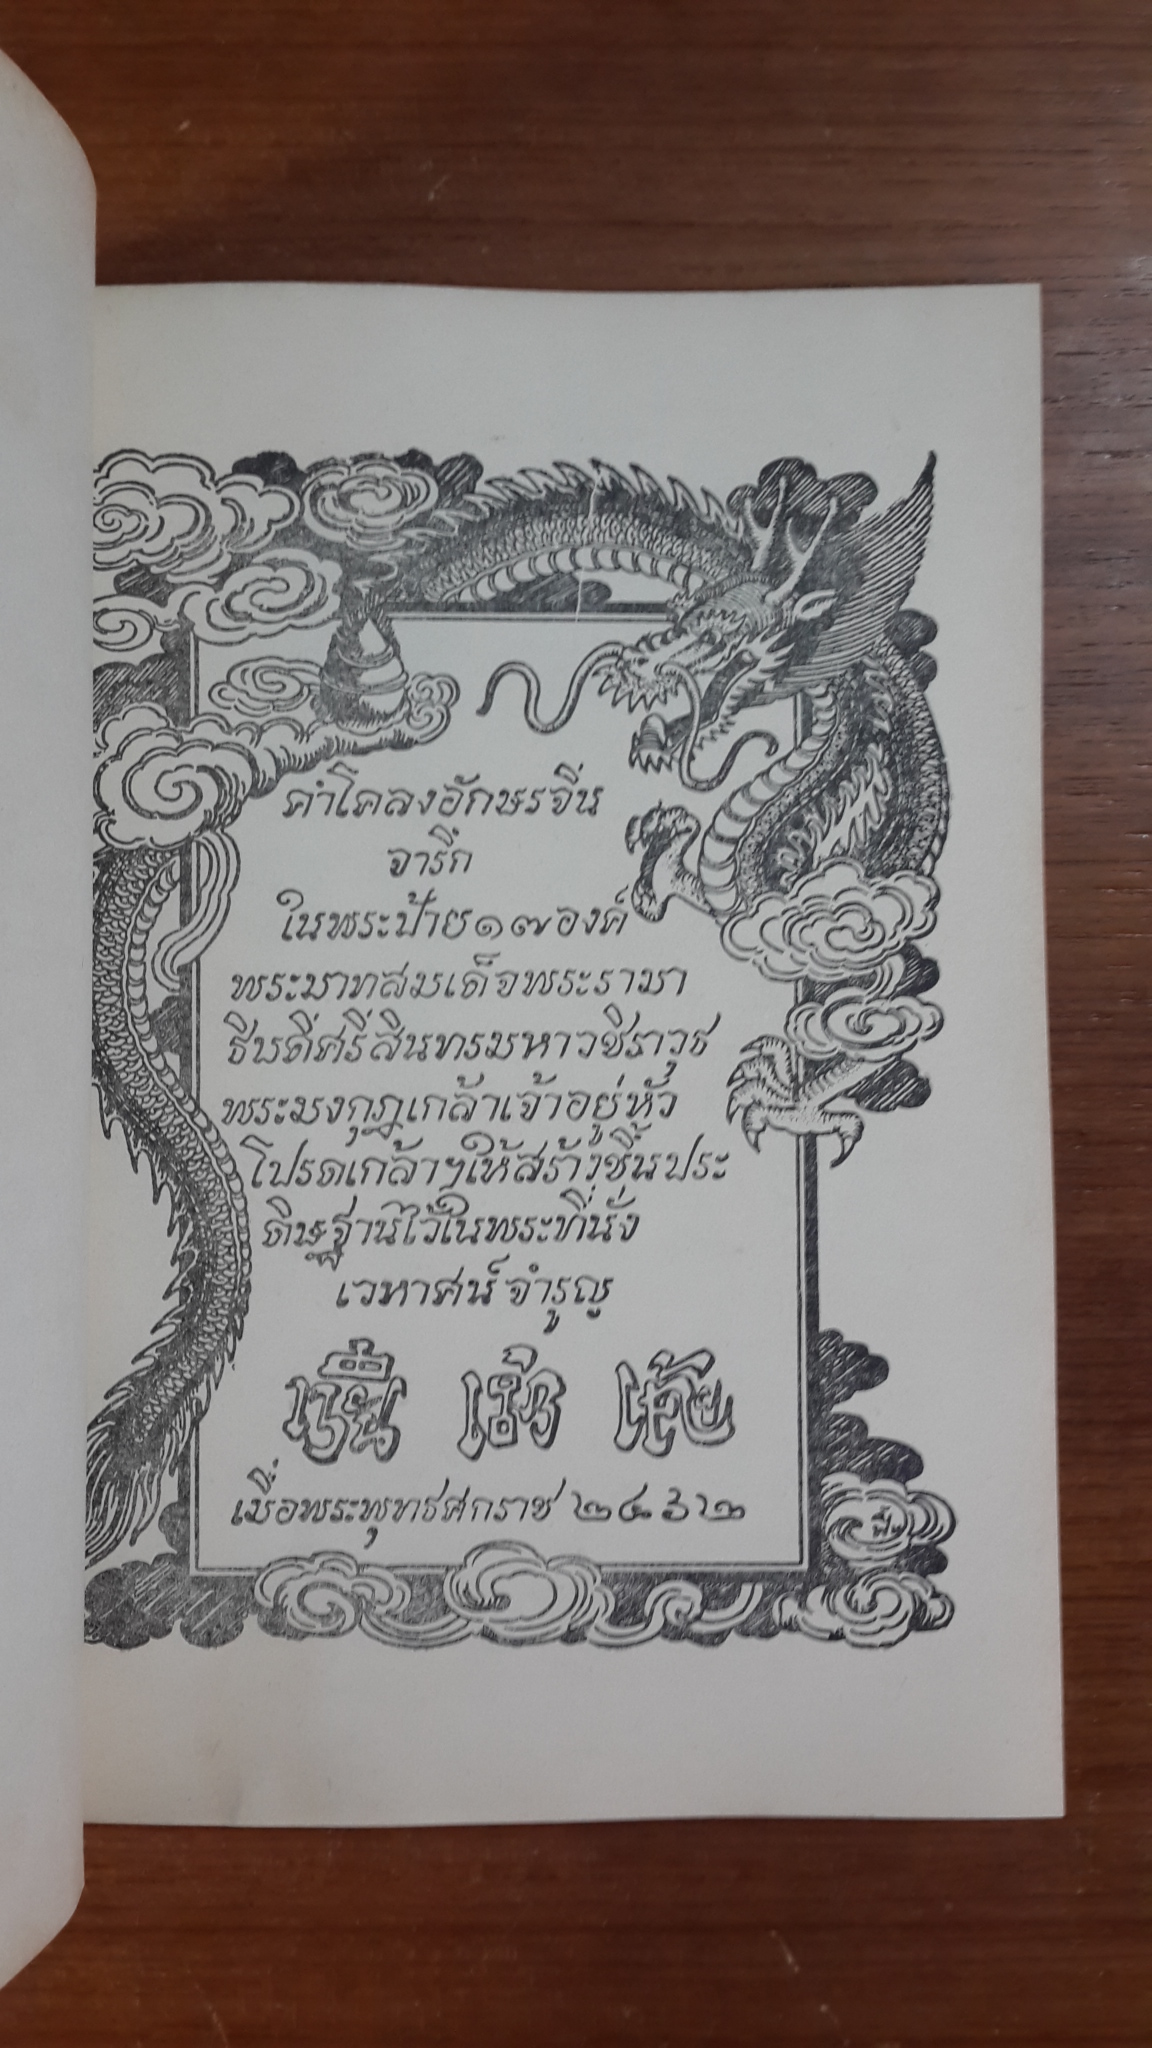 คำโคลงอักษรจีน
จารึก
ในพระป้าย๑๗องค์
พระบาทสมเด็จพระรามา
ธิบดีศรีสินทรมหาวชิราวุธ
พระมงกุฎเกล้าเจ้าอยู่หัว
โปรดเกล้าฯให้สร้างขึ้นประ
ดิษฐานไว้ในพระที่นั่ง
เวหาศน์จำรูญ
เมื่อพระพุทธศกราช ๒๔๖๒